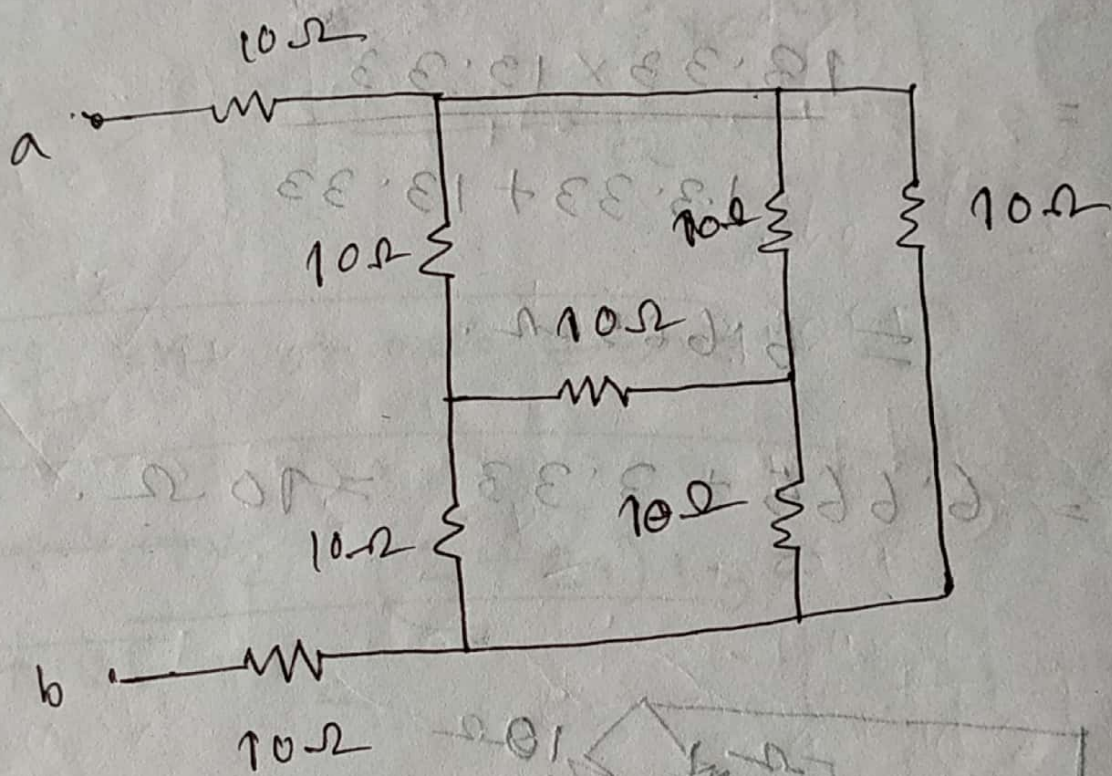 10Ω
a
10Ω
10Ω
10Ω
10Ω
10Ω
10Ω
b
10Ω